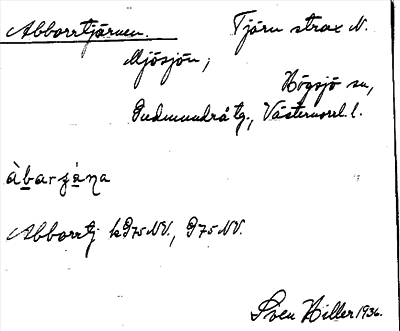 Abborrtjärnen. Tjärn strax N.
Mjösjön,
Högsjö sn,
Gudmundrå tg., Västernorrl. l.
Abborrtj k 975 NV., 975 NV.
Sven Hiller 1936.